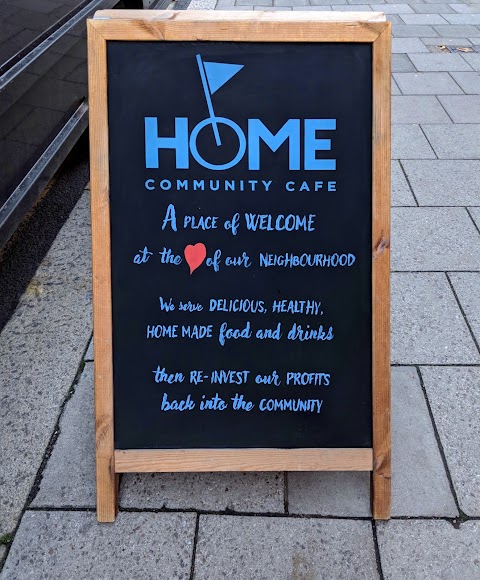 HOME
COMMUNITY CAFE
A PLACE of WELCOME
at the of our NEIGHBOURHOOD
We serve DELICIOUS, HEALTHY,
HOME MADE food and drinks
then RE-INVEST our PROFITS
back into the COMMUNITY